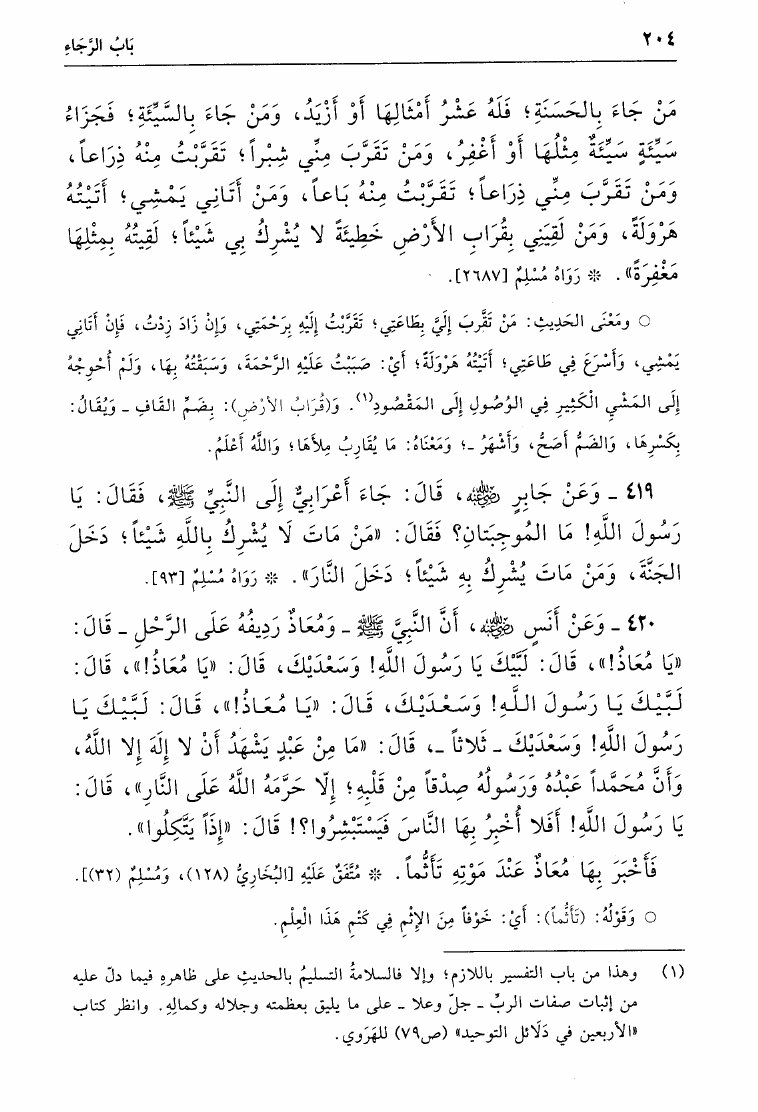 ٢٠٤ بَابُ الرَّجَاءِ
مَنْ جَاءَ بِالحَسَنَةِ؛ فَلَهُ عَشْرُ أَمْثَالِهَا أَوْ أَزْيَدُ، وَمَنْ جَاءَ بِالسَّيِّئَةِ؛ فَجَزَاءُ
سَيِّئَةٍ سَيِّئَةٌ مِثْلُهَا أَوْ أَغْفِرُ، وَمَنْ تَقَرَّبَ مِنِّي شِبْراً؛ تَقَرَّبْتُ مِنْهُ ذِرَاعاً،
وَمَنْ تَقَرَّبَ مِنِّي ذِرَاعاً؛ تَقَرَّبْتُ مِنْهُ بَاعاً، وَمَنْ أَتَانِي يَمْشِي؛ أَتَيْتُهُ
هَرْوَلَةً، وَمَنْ لَقِيَنِي بِقُرَابِ الأَرْضِ خَطِيئَةً لا يُشْرِكُ بِي شَيْئاً؛ لَقِيتُهُ بِمِثْلِهَا
مَغْفِرَةً». * رَوَاهُ مُسْلِمٌ [٢٦٨٧].
○ ومَعْنَى الحَدِيثِ: مَنْ تَقَرَّبَ إِلَيَّ بِطَاعَتِي؛ تَقَرَّبْتُ إِلَيْهِ بِرَحْمَتِي، وَإِنْ زَادَ زِدْتُ، فَإِنْ أَتَانِي
يَمْشِي، وَأَسْرَعَ فِي طَاعَتِي؛ أَتَيْتُهُ هَرْوَلَةً؛ أَيْ: صَبَبْتُ عَلَيْهِ الرَّحْمَةَ، وَسَبَقْتُهُ بِهَا، وَلَمْ أُحْوِجْهُ
إِلَى المَشْيِ الْكَثِيرِ فِي الوُصُولِ إِلَى المَقْصُودِ(١). وَ(قُرَابُ الأَرْضِ): بِضَمِّ القَافِ ـ وَيُقَالُ:
بِكَسْرِهَا، وَالضَّمُّ أَصَحُّ، وَأَشْهَرُ ـ؛ وَمَعْنَاهُ: مَا يُقَارِبُ مِلأَهَا؛ وَاللَّهُ أَعْلَمُ.
٤١٩ ـ وَعَنْ جَابِرٍ رضي الله عنه، قَالَ: جَاءَ أَعْرَابِيٌّ إِلَى النَّبِيِّ ﷺ، فَقَالَ: يَا
رَسُولَ اللَّهِ! مَا المُوجِبَتَانِ؟ فَقَالَ: «مَنْ مَاتَ لَا يُشْرِكُ بِاللَّهِ شَيْئاً؛ دَخَلَ
الجَنَّةَ، وَمَنْ مَاتَ يُشْرِكُ بِهِ شَيْئاً؛ دَخَلَ النَّارَ». * رَوَاهُ مُسْلِمٌ [٩٣].
٤٢٠ ـ وَعَنْ أَنَسٍ رضي الله عنه، أَنَّ النَّبِيَّ ﷺ ـ وَمُعَاذٌ رَدِيفُهُ عَلَى الرَّحْلِ ـ قَالَ:
«يَا مُعَاذُ!»، قَالَ: لَبَّيْكَ يَا رَسُولَ اللَّهِ! وَسَعْدَيْكَ، قَالَ: «يَا مُعَاذُ!»، قَالَ:
لَبَّيْكَ يَا رَسُولَ اللَّهِ! وَسَعْدَيْكَ، قَالَ: «يَا مُعَاذُ!»، قَالَ: لَبَّيْكَ يَا
رَسُولَ اللَّهِ! وَسَعْدَيْكَ ـ ثَلاثاً ـ، قَالَ: «مَا مِنْ عَبْدٍ يَشْهَدُ أَنْ لا إِلَهَ إِلا اللَّهُ،
وَأَنَّ مُحَمَّداً عَبْدُهُ وَرَسُولُهُ صِدْقاً مِنْ قَلْبِهِ؛ إِلّا حَرَّمَهُ اللَّهُ عَلَى النَّارِ»، قَالَ:
يَا رَسُولَ اللَّهِ! أَفَلا أُخْبِرُ بِهَا النَّاسَ فَيَسْتَبْشِرُوا؟! قَالَ: «إِذَاً يَتَّكِلُوا».
فَأَخْبَرَ بِهَا مُعَاذٌ عَنْدَ مَوْتِهِ تَأَثُّماً. * مُتَّفَقٌ عَلَيْهِ [البُخَارِيُّ (١٢٨)، وَمُسْلِمٌ (٣٢)].
○ وَقَوْلُهُ: (تَأَثُّماً): أَيْ: خَوْفاً مِنَ الإِثْمِ فِي كَتْمِ هَذَا الْعِلْمِ.
(١) وهذا من باب التفسير باللازم؛ وإلا فالسلامةُ التسليمُ بالحديثِ على ظاهرهِ فيما دلّ عليه
من إثبات صفات الربِّ ـ جلّ وعلا ـ على ما يليق بعظمته وجلاله وكمالِهِ. وانظر كتاب
«الأربعين في دَلَائل التوحيد» (ص٧٩) للهَرَوي.